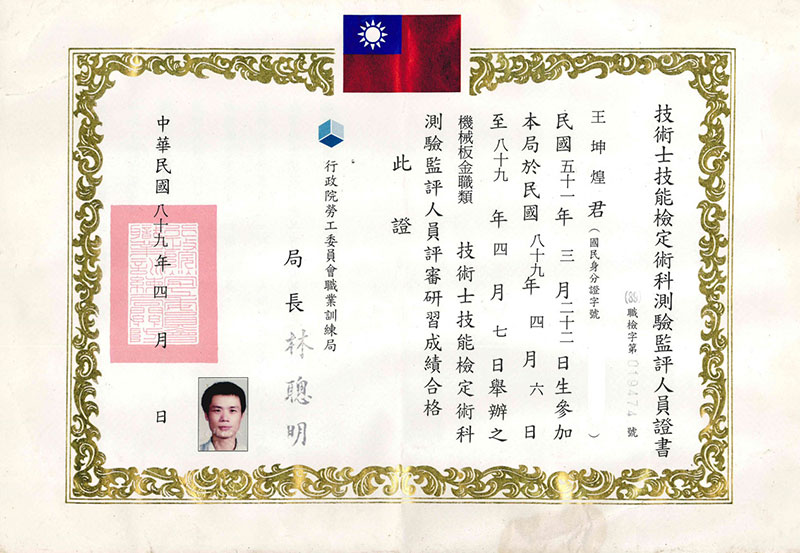 技術士技能檢定術科測驗監評人員證書
(89)職檢字第019474號
王坤煌君(國民身分證字號 )
民國五十一年三月二十二日生參加
本局於民國八十九年四月六日
至八十九年四月七日舉辦之
機械板金職類 技術士技能檢定術科
測驗監評人員評審研習成績合格
此證
行政院勞工委員會職業訓練局
局長 林聰明
中華民國八十九年四月 日